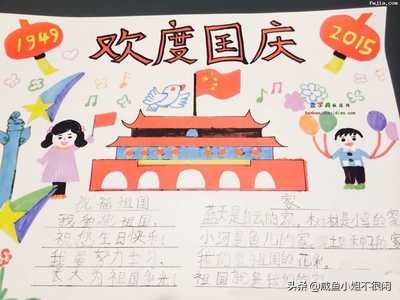 Fwjia.com
1949
欢度国庆
2015
查字典
祝福祖国
我的祖国
祝您生日快乐!
我要努力学习,
长大为祖国争光!
家
蓝天是白云的家,树林是小鸟的家,
小河是鱼儿的家,
我们是祖国的花朵,
祖国就是我们的家
头条 @咸鱼小姐不很闲